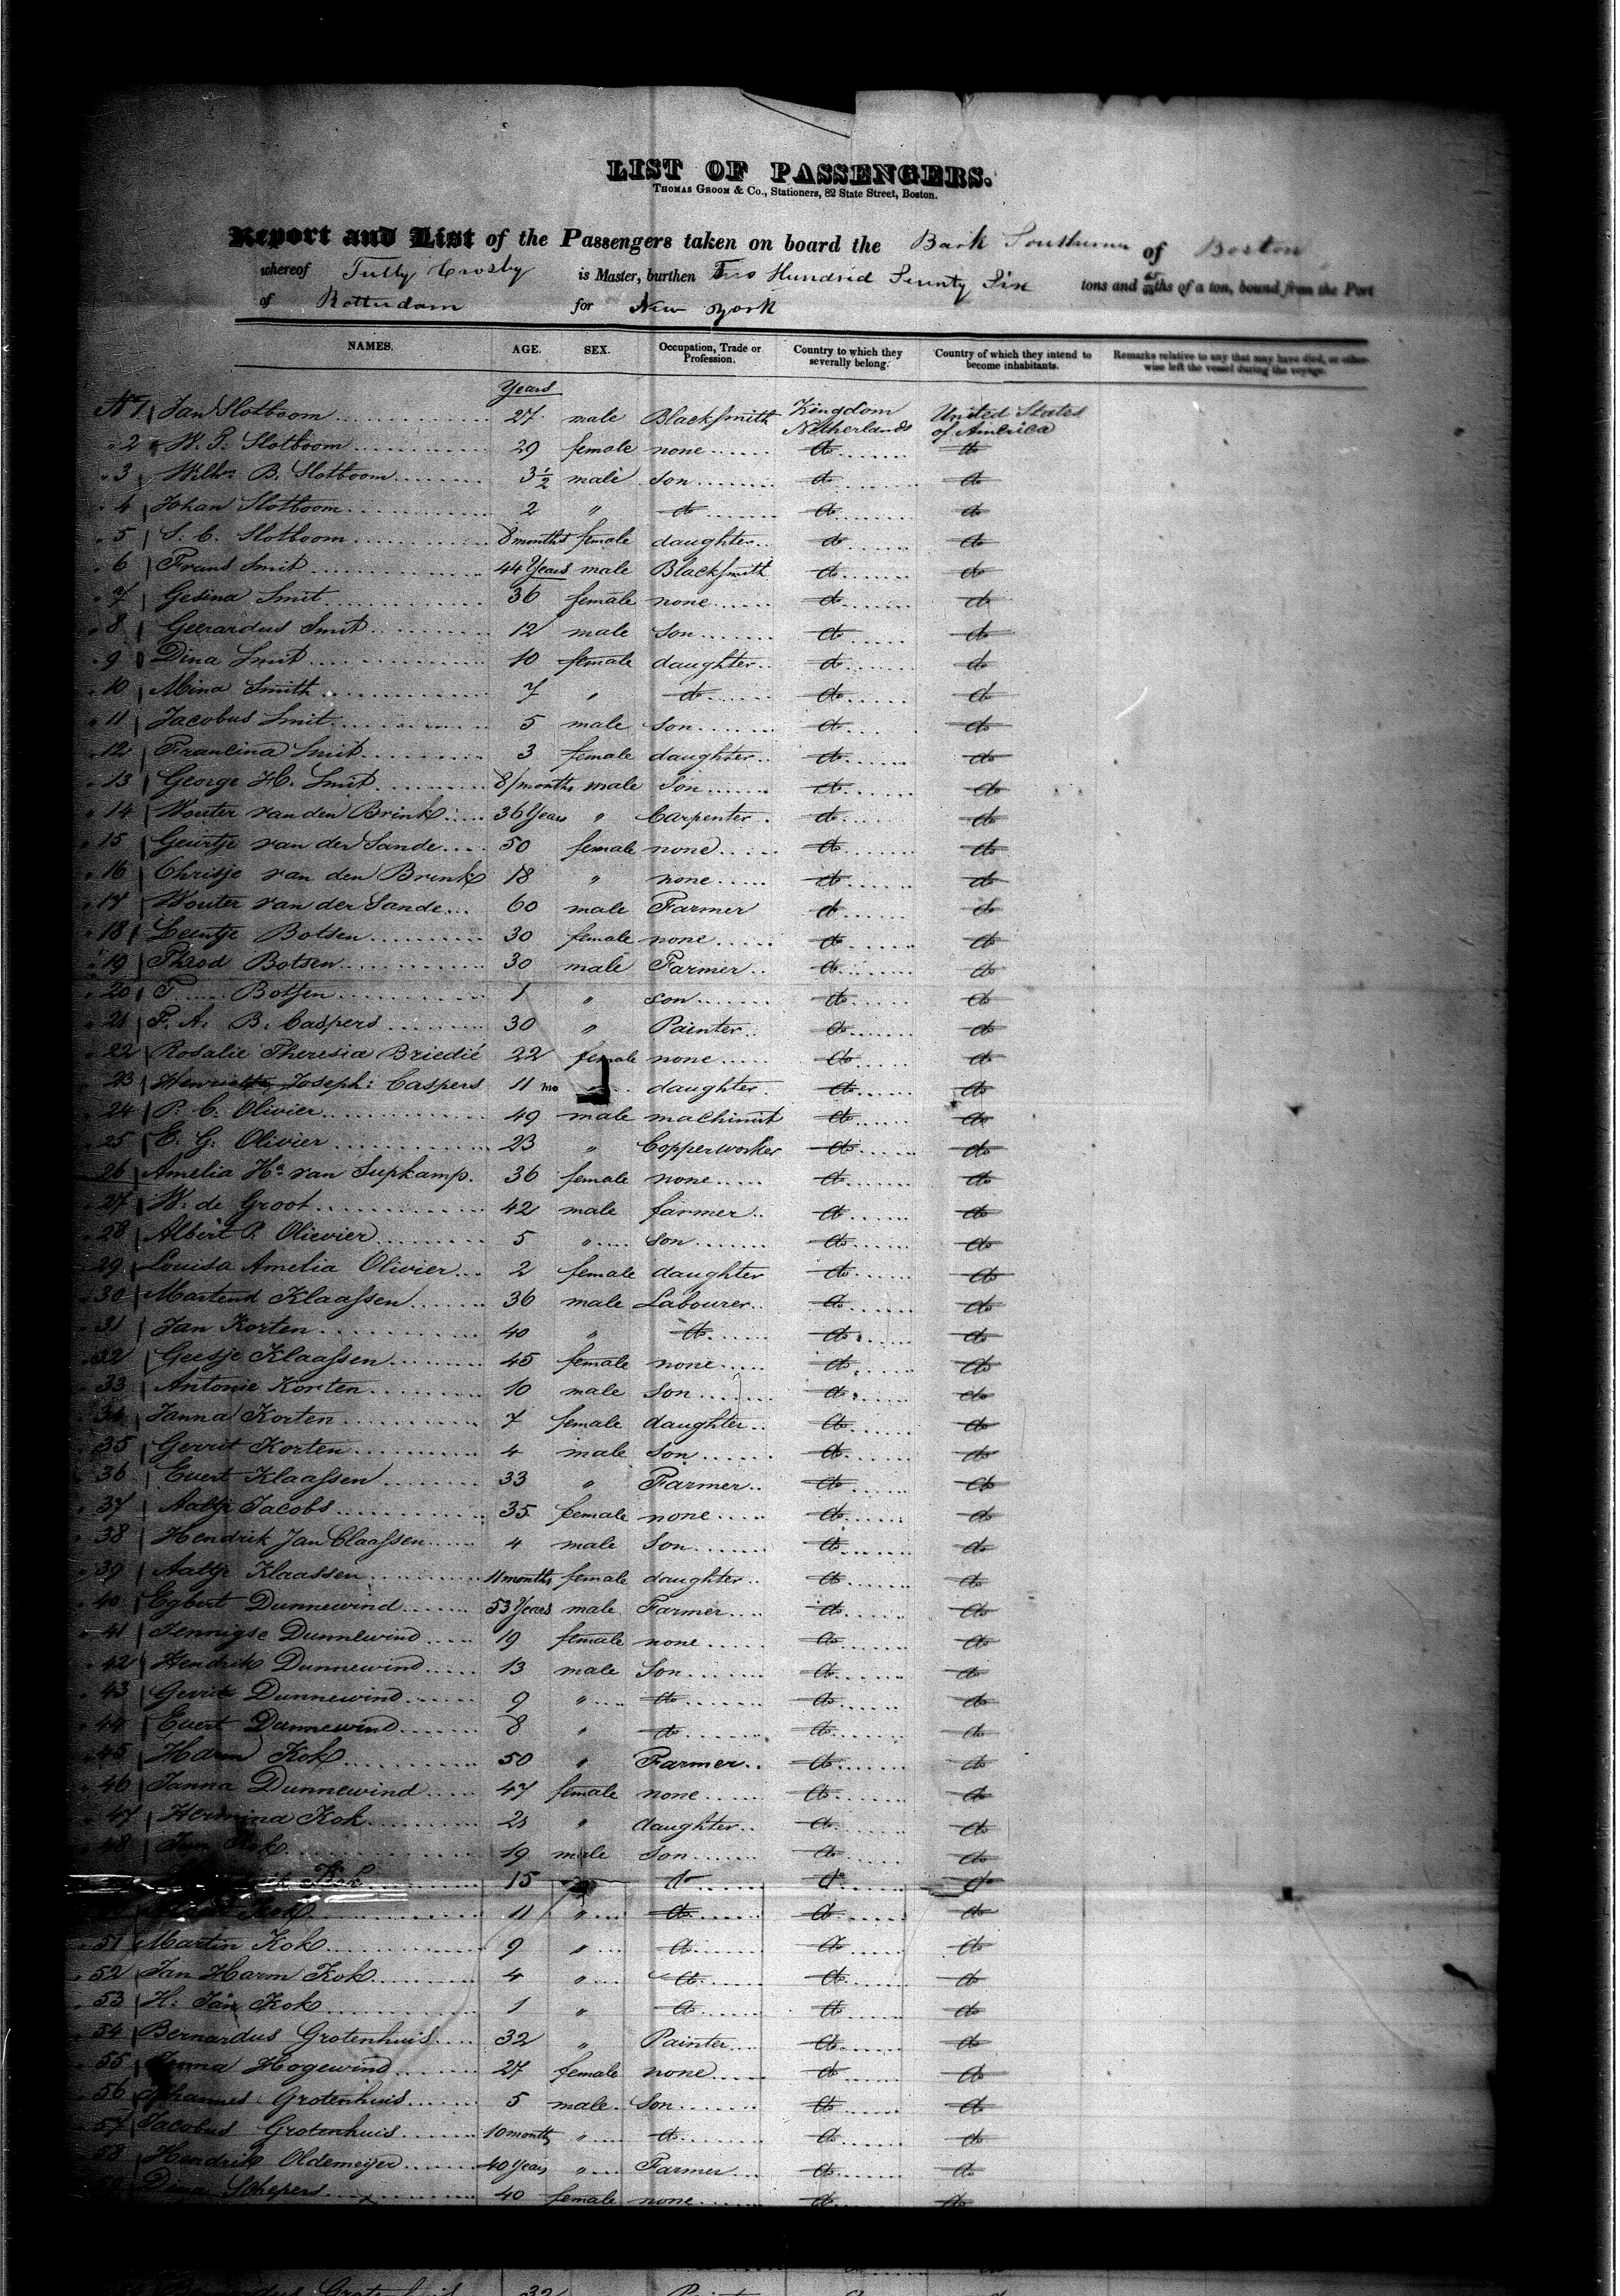 LIST OF PASSENGERS.
THOMAS GROOM & Co., Stationers, 82 State Street, Boston.
Report and List of the Passengers taken on board the Bark Southerner of Boston
whereof Tully Crosby is Master, burthen Two Hundred Seventy Six tons and ths of a ton, bound from the Port
of Rotterdam for New York
NAMES. AGE. SEX. Occupation, Trade or Profession. Country to which they severally belong. Country of which they intend to become inhabitants. Remarks relative to any that may have died, or otherwise left the vessel during the voyage.
Years
No 1 Jan Slotboom 27 male Blacksmith Kingdom Netherlands United States of America
2 W. P. Slotboom 29 female none do do
3 Willm B. Slotboom 3½ male son do do
4 Johan Slotboom 2 " do do do
5 S. C. Slotboom 8 months female daughter do do
6 Frans Smit 44 Years male Blacksmith do do
7 Gesina Smit 36 female none do do
8 Geerardus Smit 12 male son do do
9 Dina Smit 10 female daughter do do
10 Mina Smith 7 " do do do
11 Jacobus Smit 5 male son do do
12 Francina Smit 3 female daughter do do
13 George H. Smit 8/months male Son do do
14 Wouter van den Brink 36 Years " Carpenter do do
15 Geurtje van der Sande 50 female none do do
16 Chrisje van den Brink 18 " none do do
17 Wouter van der Sande 60 male Farmer do do
18 Leentje Botsen 30 female none do do
19 Theod Botsen 30 male Farmer do do
20 T. Botsen 1 " son do do
21 F. A. B. Caspers 30 " Painter do do
22 Rosalie Theresia Briedié 22 female none do do
23 Henriette Joseph: Caspers 11 mo daughter do do
24 P. C. Olivier 49 male machinist do do
25 E. G. Olivier 23 " Copperworker do do
26 Amelia Ha van Supkamp. 36 female none do do
27 W. de Groot 42 male farmer do do
28 Albert P. Olievier 5 " son do do
29 Louisa Amelia Olivier 2 female daughter do do
30 Martend Klaassen 36 male Labourer do do
31 Jan Korten 40 " do do do
32 Geesje Klaassen 45 female none do do
33 Antonie Korten 10 male Son do do
34 Janna Korten 7 female daughter do do
35 Gerrit Korten 4 male Son do do
36 Evert Klaassen 33 " Farmer do do
37 Aaltje Jacobs 35 female none do do
38 Hendrik Jan Claassen 4 male Son do do
39 Aaltje Klaassen 11 months female daughter do do
40 Egbert Dunnewind 53 Years male Farmer do do
41 Jennigse Dunnewind 19 female none do do
42 Hendrik Dunnewind 13 male Son do do
43 Gerrit Dunnewind 9 " do do do
44 Evert Dunnewind 8 " do do do
45 Harm Kok 50 " Farmer do do
46 Janna Dunnewind 47 female none do do
47 Hermina Kok 21 " daughter do do
48 Jan Kok 19 male Son do do
Kok 15 do do do
Kok 11 " do do do
51 Martin Kok 9 " do do do
52 Jan Harm Kok 4 " do do do
53 H. Jan Kok 1 " do do do
54 Bernardus Grotenhuis 32 " Painter do do
55 Hogewind 27 female none do do
56 Johannes Grotenhuis 5 male Son do do
57 Jacobus Grotenhuis 10 months " do do do
58 Hendrik Oldemeijer 40 Years " Farmer do do
59 Dina Schepers 40 female none do do
Bernardus Grotenhuis 32 Painter